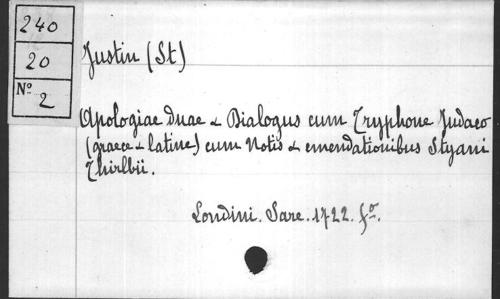 240
20
Nº 2
Justin (St)
Apologiae Duae & Dialogus cum Tryphone Judaeo
(graece & latine) cum Notis & emendationibus Styani
Thirlbii.
Londini. Sare. 1722. fº.